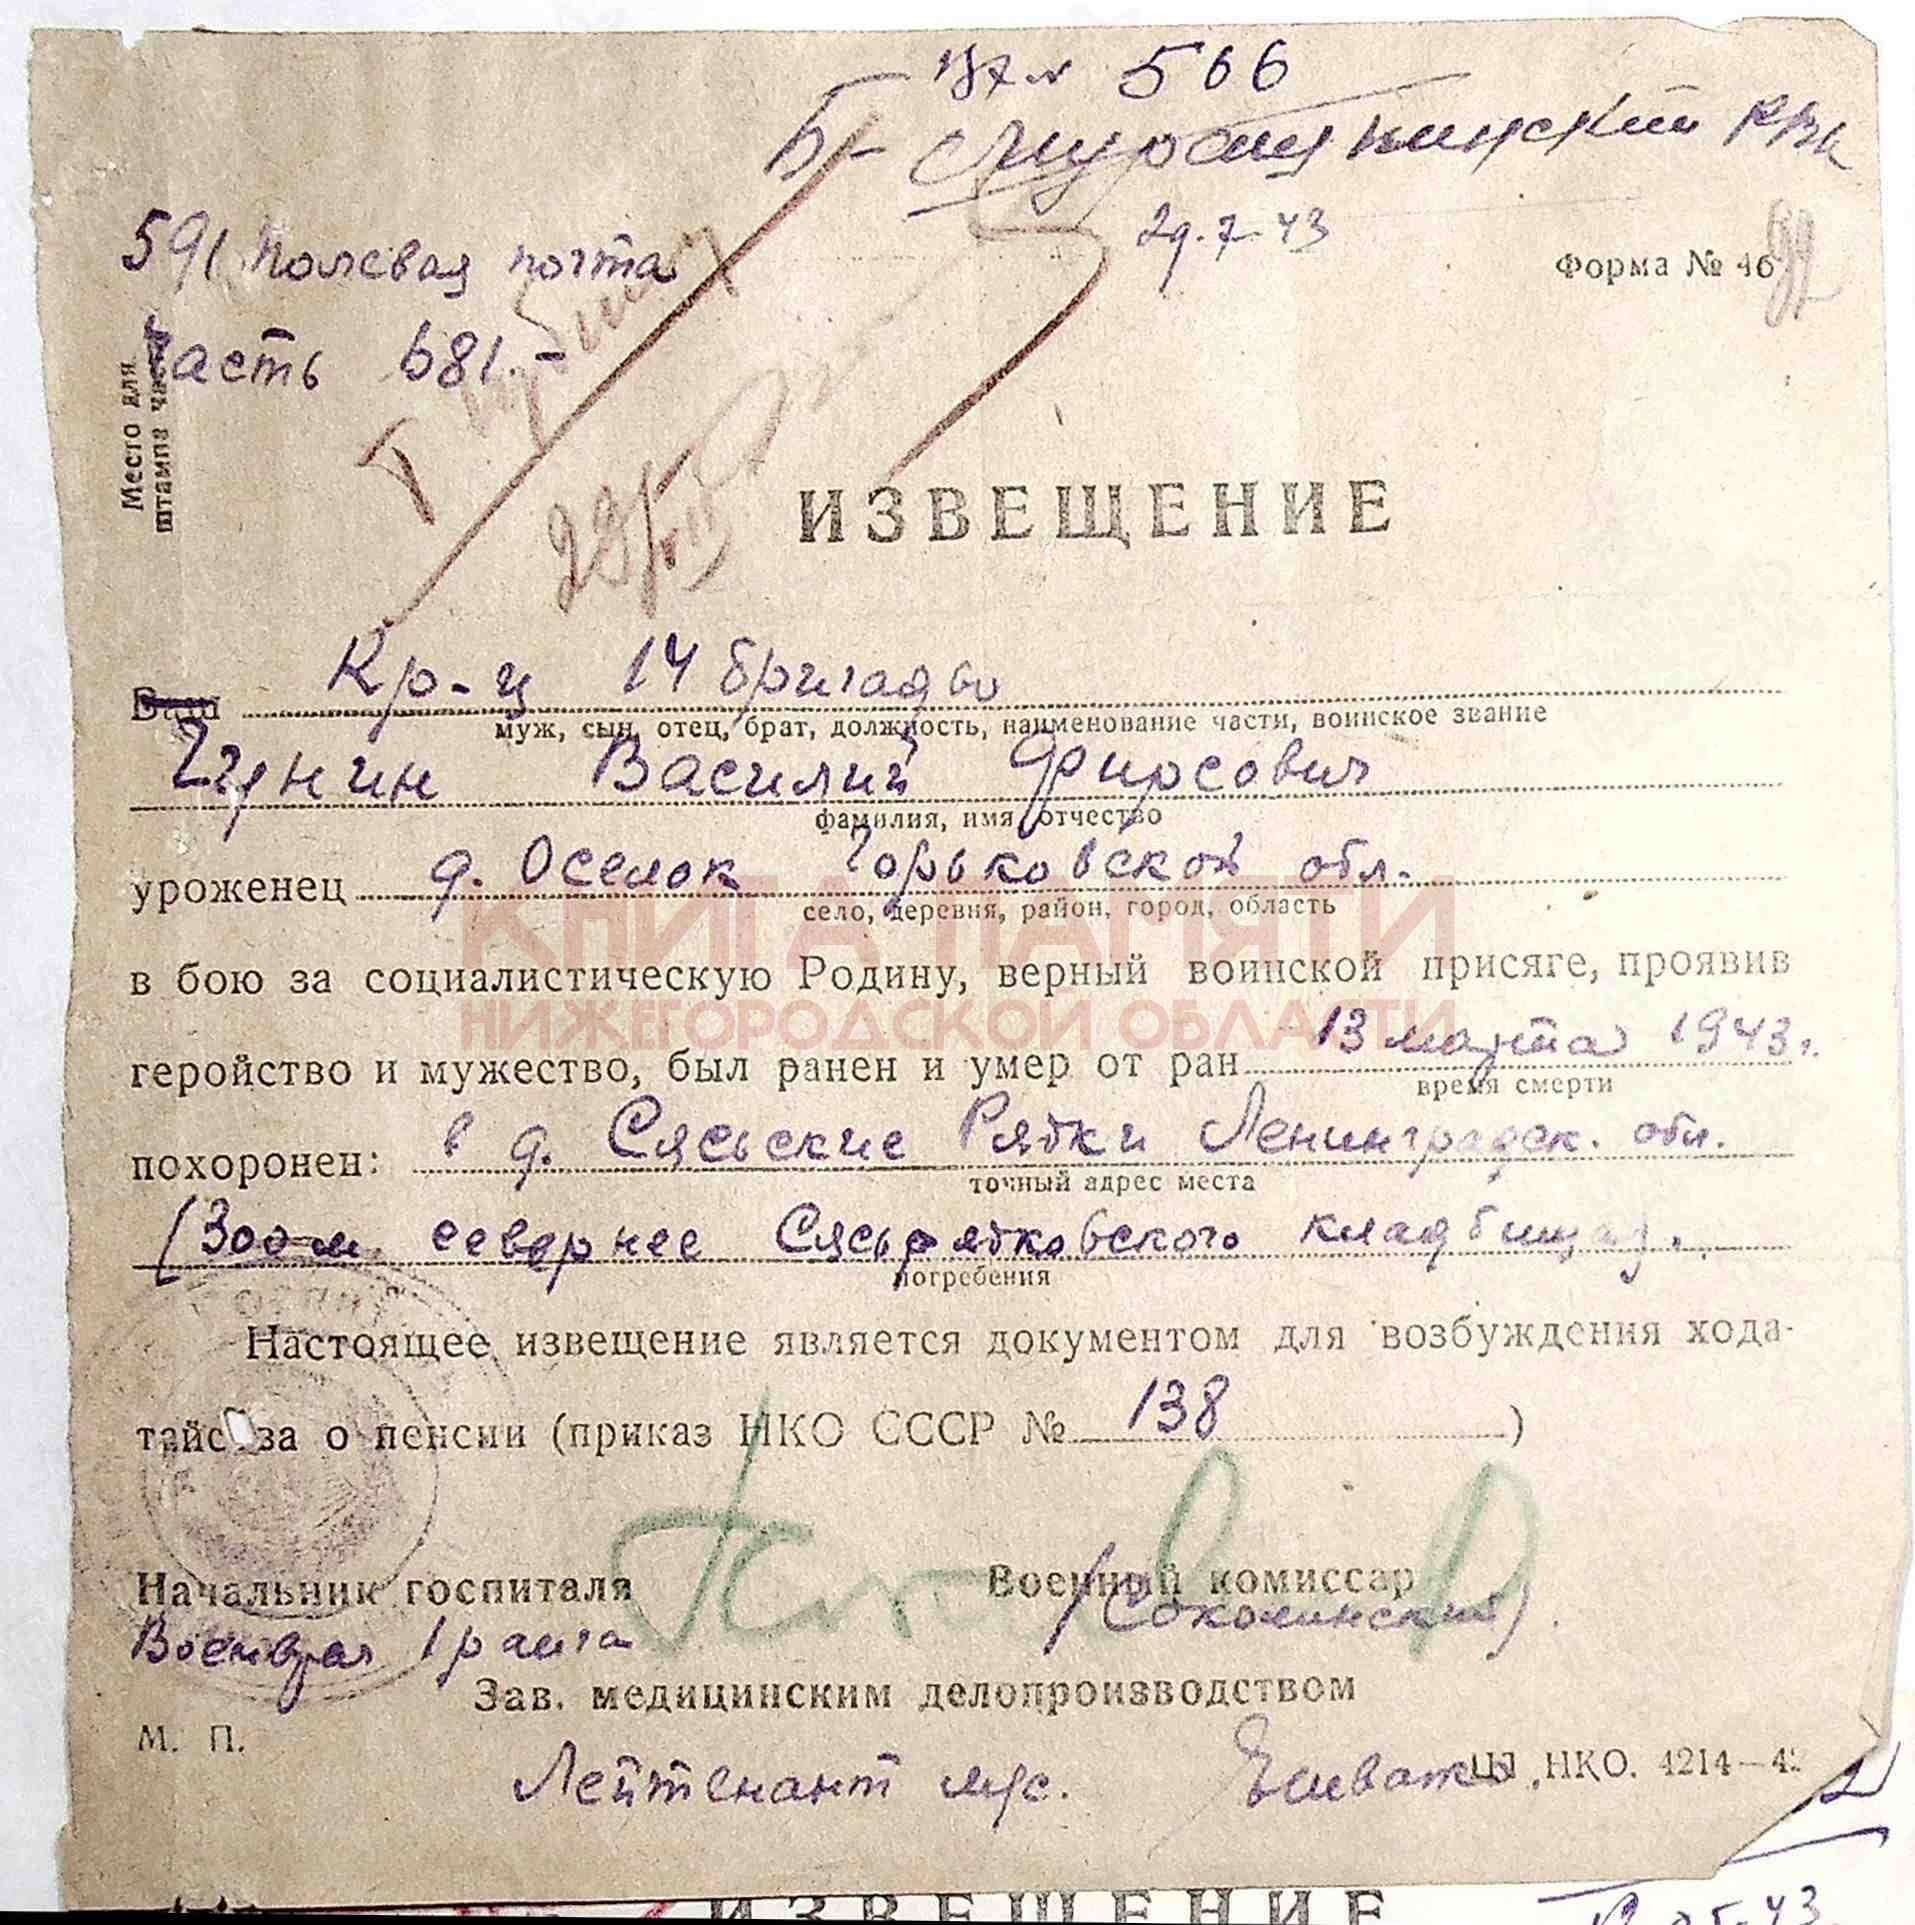 566
Б-Мурашкинский РВК
29.7.43
591 Полевая почта
Форма № 46
часть 681.-
Место для
штампа части
ИЗВЕЩЕНИЕ
Ваш Кр-ц 14 бригады
муж, сын, отец, брат, должность, наименование части, воинское звание
Василий Фирсович
фамилия, имя, отчество
уроженец д. Оселок Горьковской обл.
село, деревня, район, город, область
КНИГА ПАМЯТИ
в бою за социалистическую Родину, верный воинской присяге, проявив
НИЖЕГОРОДСКОЙ ОБЛАСТИ
геройство и мужество, был ранен и умер от ран 13 марта 1943г.
время смерти
похоронен: в д. Сясьские Рядки Ленинградск. обл.
точный адрес места
(300 м. севернее Сясьрядковского кладбища).
погребения
Настоящее извещение является документом для возбуждения хода-
тайства о пенсии (приказ НКО СССР № 138)
Начальник госпиталя Военный комиссар
Военврач 1 ранга (Соколинский).
Зав. медицинским делопроизводством
М. П.
Лейтенант м/с. НКО. 4214—42
ИЗВЕЩЕНИЕ